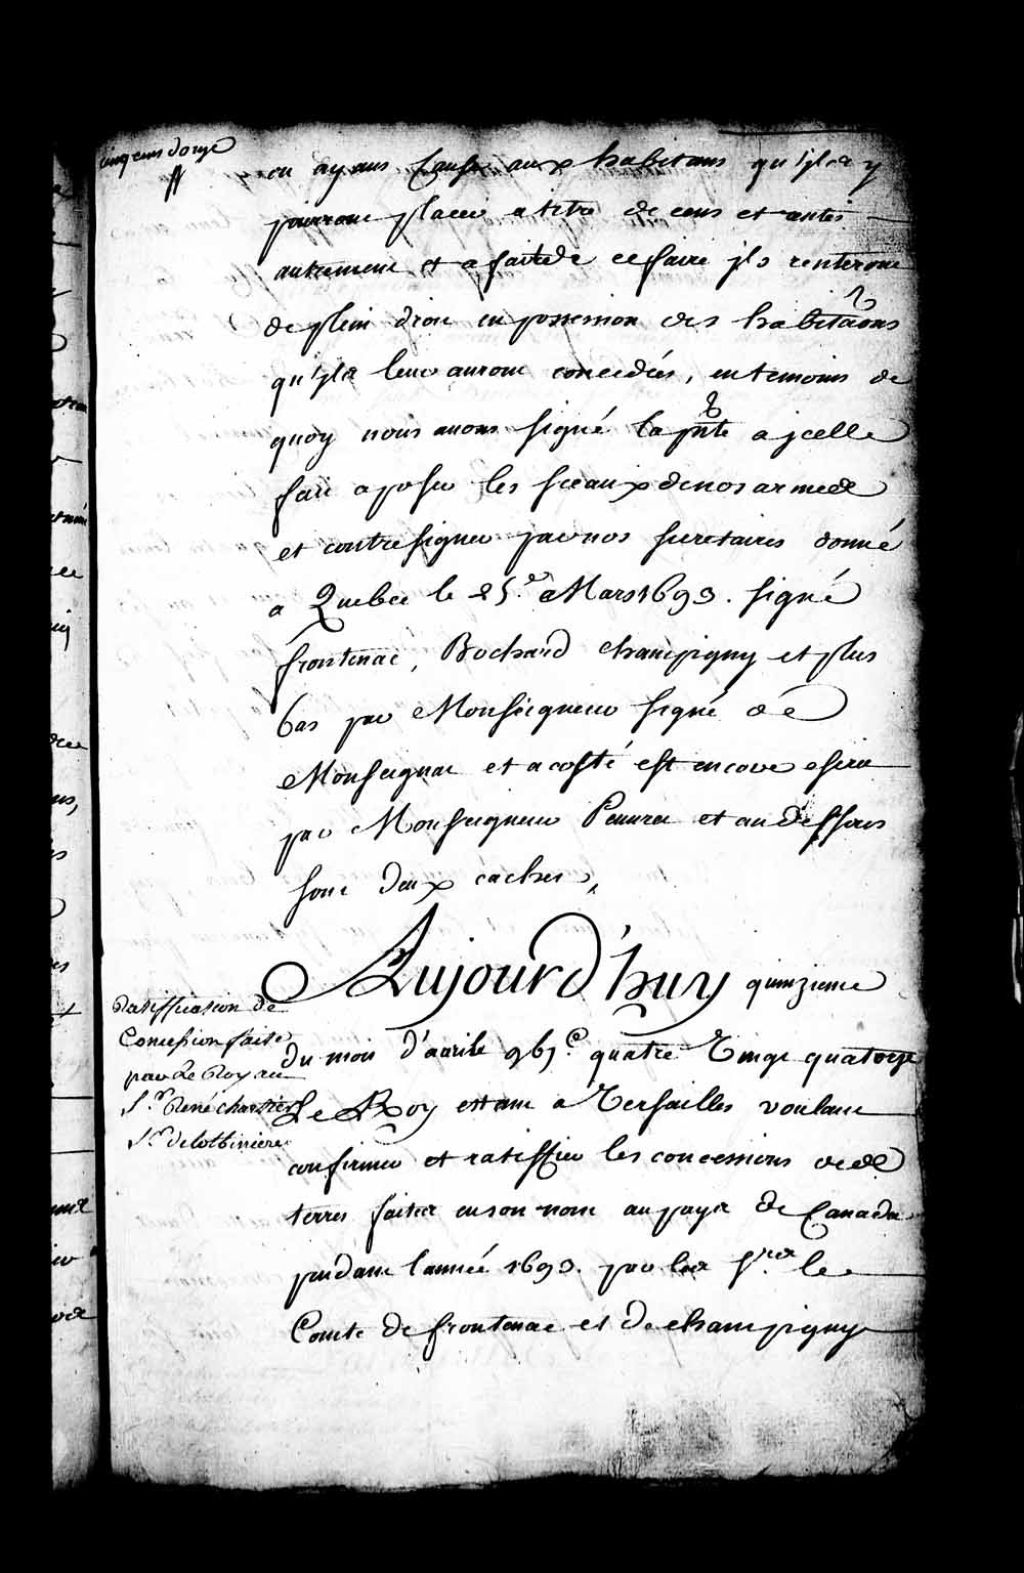 cinq cens douze
ou ayans Cause aux habitans qu'ilz y
pourront placer a titre de cens et rentes
autrement et a faute de ce faire jls rentreront
de plein droit en possession des habitãons
qu'ilz leur auront concedées, en temoins de
quoy nous auons signé la pnte a jcelle
fait aposer les sceaux de nos armes
et contresigner par nos secretaires donné
a Quebec le 25.e Mars 1693. signé
frontenac, Bochard Champigny et plus
bas par Monseigneur signé de
Monseignat et a costé est encore escrit
par Monseigneur et au dessous
sont deux cachets,
Aujourd'huy quinzieme
Ratiffication de
Concession faite
par Le Roy au
S.r René Chartier
S.r de lotbiniere
du mois d'auril 16.c quatre Vingt quatorze
Le Roy estant a Versailles voulant
confirmer et ratiffier les concessions de
terres faites en son nom au pays de Canada
pendant l'année 1693. par les S.rs le
Comte de frontenac et de champigny